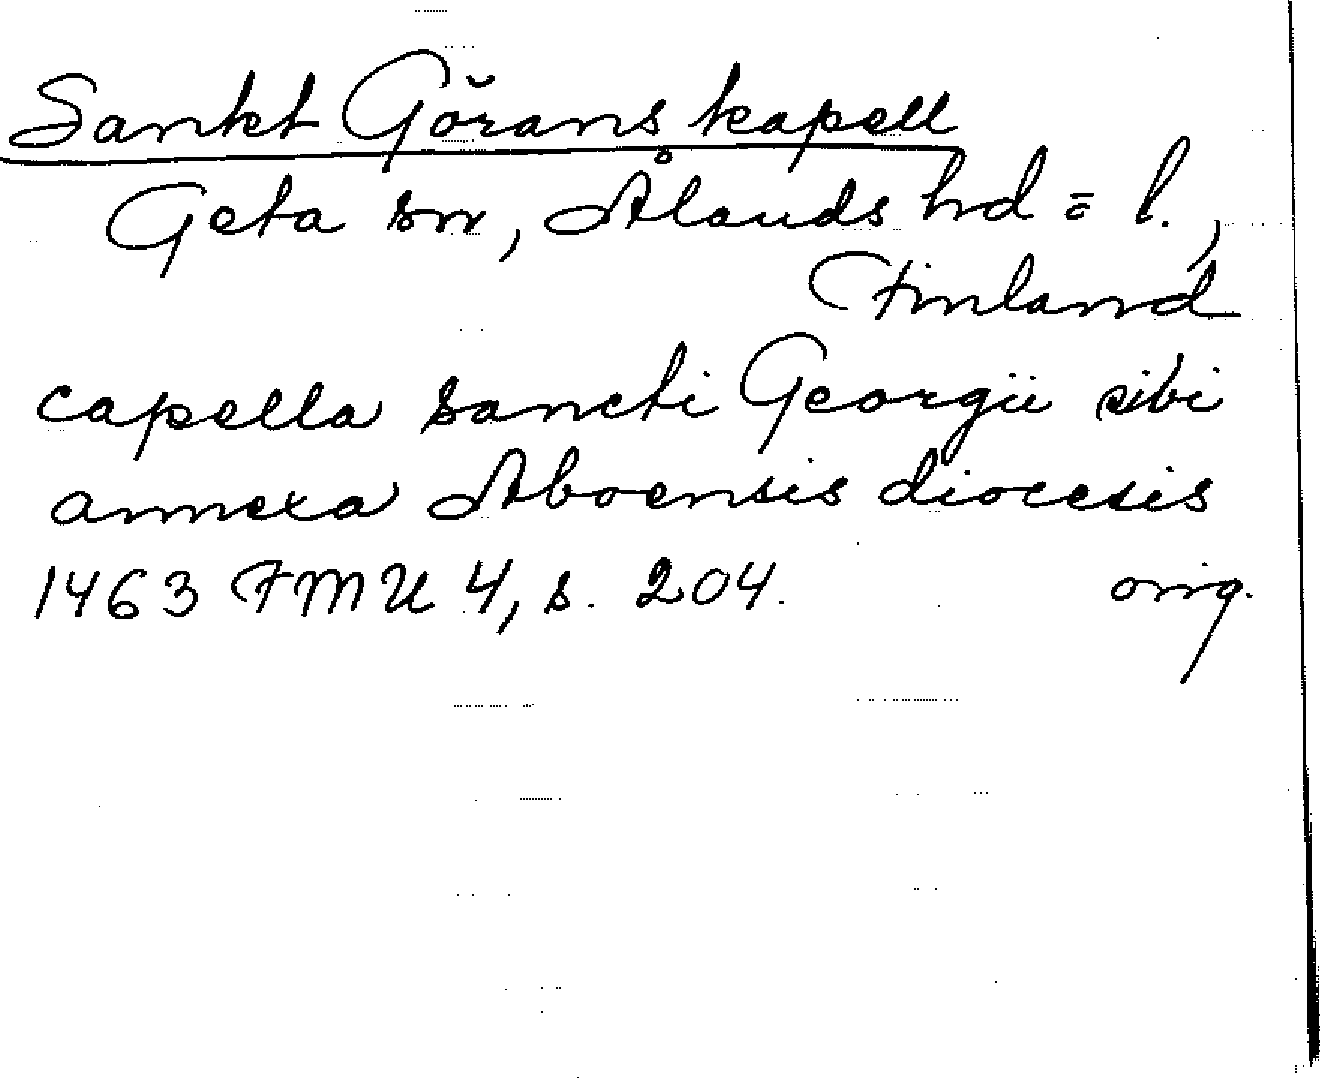 Sankt Görans kapell
Geta sn, Ålands hd = l.,
Finland
capella sancti Georgii sibi
annexa Aboensis diocesis
1463 FMU 4, s. 204. orig.